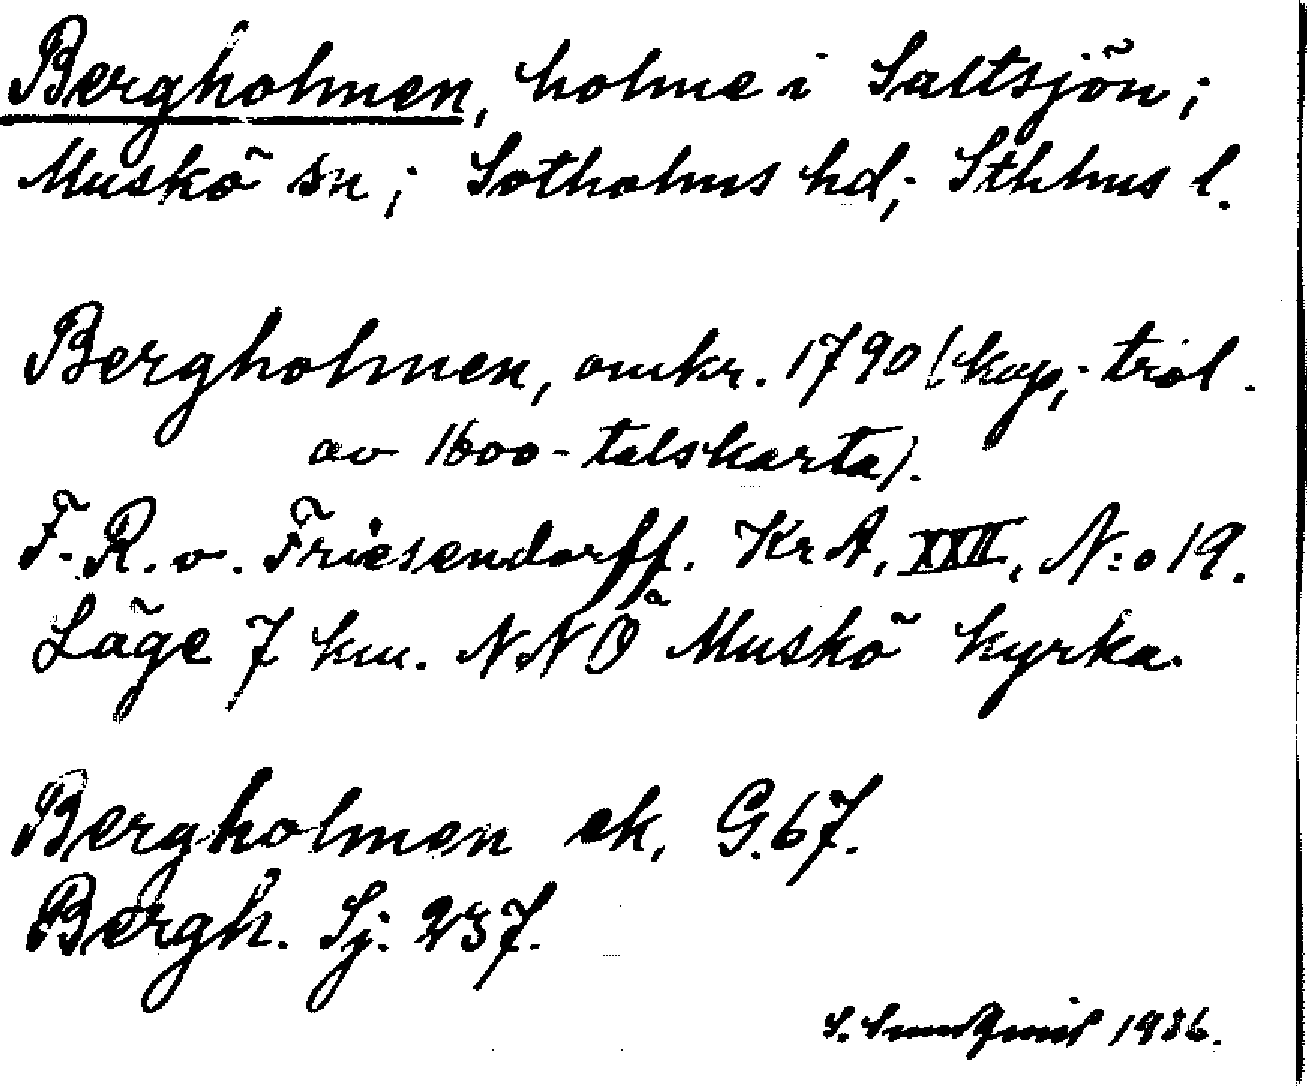 Bergholmen, holme i Saltsjön;
Muskö sn; Sotholms hd; Sthlms l.
Bergholmen, omkr. 1790 (kop; trol.
av 1600-talskarta).
F. R. v. Friesendorff. KrA, XXII, N:o 19.
Läge 7 km. NNO å Muskö kyrka.
Bergholmen ek, G.67.
Bergh. Sj. 237.
S. Sundqvist 1936.